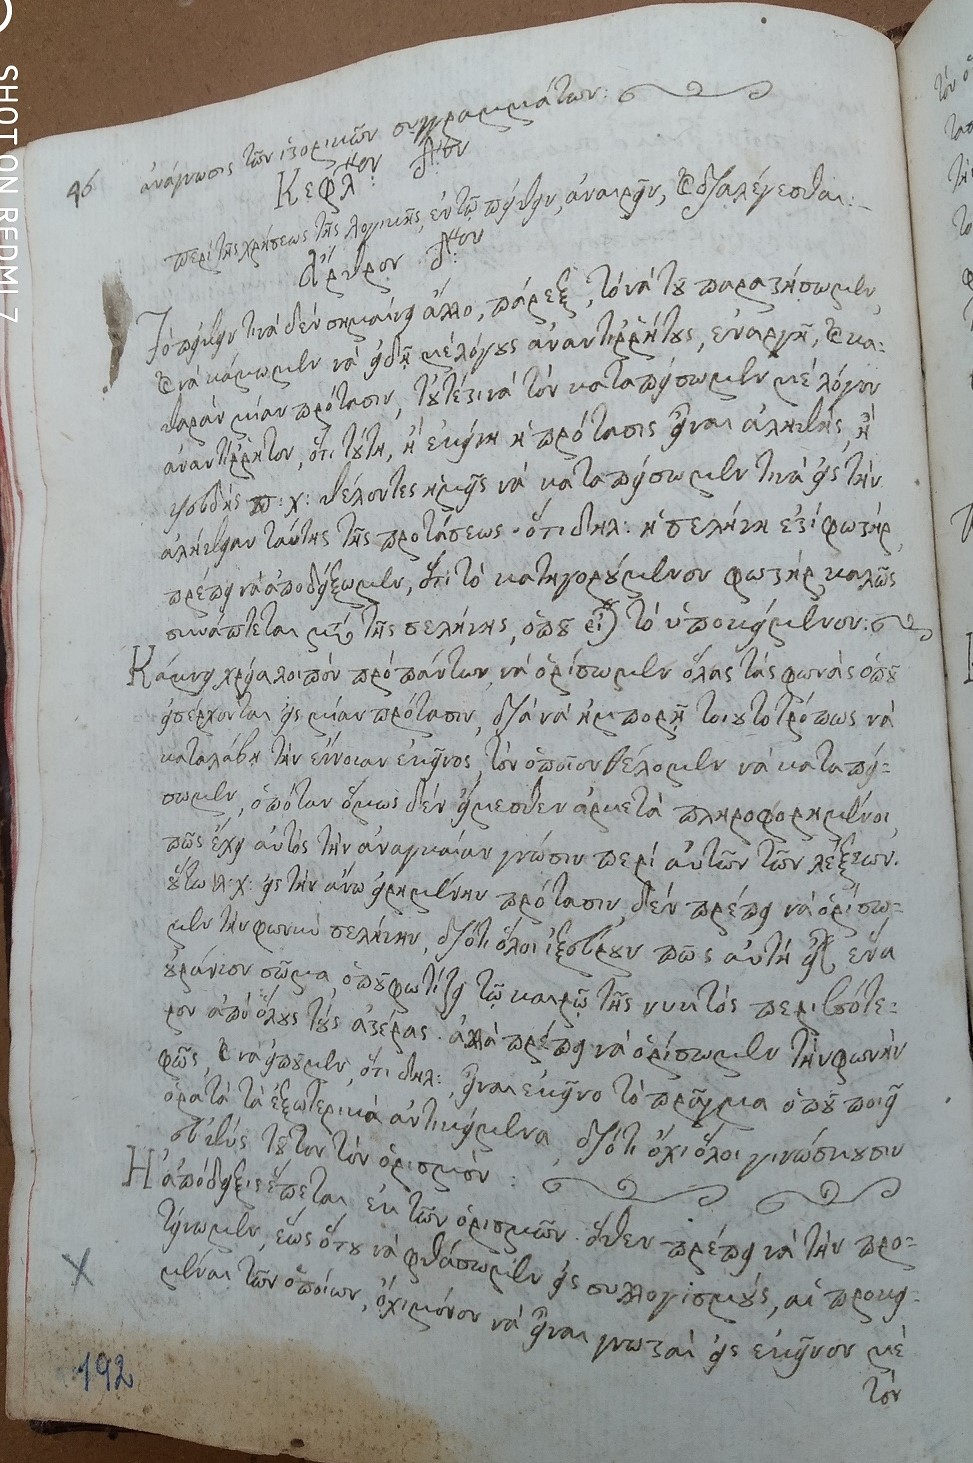 SHOT ON REDMI 7
46
ἀνάγνωσις τῶν ἱστορικῶν συγγραμμάτων:
Κεφάλ: Δ:ον
περὶ τῆς χρήσεως τῆς λογικῆς, ἐν τῷ πείθειν, ἀναιρεῖν, καὶ διαλέγεσθαι:
Ἄρθρον
Τὸ πείθειν τινὰ δὲν σημαίνει ἄλλο, πάρεξ, τὸ νὰ τοῦ παραστήσωμεν,
καὶ νὰ κάμωμεν νὰ ἰδῇ μὲ λόγους ἀναντιῤῥήτους, ἐναργῆ, καὶ κα=
θαρὰν μίαν πρότασιν, τουτέστι νὰ τὸν καταπείσωμεν μὲ λόγον
ἀναντίῤῥητον, ὅτι τούτη, ἢ ἐκείνη ἡ πρότασις εἶναι ἀληθής, ἢ
ψευδής π:χ: θέλοντες ἡμεῖς νὰ καταπείσωμεν τινὰ εἰς τὴν
ἀλήθειαν ταύτης τῆς προτάσεως· ὅτι δηλ: ἡ σελήνη ἐστὶ φωστήρ,
πρέπει νὰ ἀποδείξωμεν, ὅτι τὸ κατηγορούμενον φωστὴρ καλῶς
συνάπτεται μετὰ τῆς σελήνης, ὁποῦ εἶναι τὸ ὑποκείμενον:
Κάμνει χρεία λοιπὸν πρὸ πάντων, νὰ ὁρίσωμεν ὅλας τὰς φωνὰς ὁποῦ
εἰσέρχονται εἰς μίαν πρότασιν, διὰ νὰ ἠμπορῇ τοιουτοτρόπως νὰ
καταλάβῃ τὴν ἔννοιαν ἐκεῖνος, τὸν ὁποῖον θέλομεν νὰ καταπεί=
σωμεν, ὁπόταν ὅμως δὲν εἴμεσθεν ἀρκετὰ πληροφορημένοι,
πῶς ἔχει αὐτὸς τὴν ἀναγκαίαν γνῶσιν περὶ αὐτῶν τῶν λέξεων.
οὕτω π:χ: εἰς τὴν ἄνω εἰρημένην πρότασιν, δὲν πρέπει νὰ ὁρίσω=
μεν τὴν φωνὴν σελήνην, διότι ὅλοι ἰξεύρουν πῶς αὐτὴ εἶναι ἕνα
οὐράνιον σῶμα, ὁποῦ φωτίζει τῷ καιρῷ τῆς νυκτὸς περισσότε=
ρον ἀπὸ ὅλους τοὺς ἀστέρας· ἀλλὰ πρέπει νὰ ὁρίσωμεν τὴν φωνὴν
φῶς, καὶ νὰ εἰποῦμεν, ὅτι δηλ: εἶναι ἐκεῖνο τὸ πρᾶγμα ὁποῦ ποιεῖ
ὁρατὰ τὰ ἐξωτερικὰ ἀντικείμενα, διότι ὄχι ὅλοι γινώσκουσιν
εὐθὺς τοῦτον τὸν ὁρισμόν:
Ἡ ἀπόδειξις ἕπεται ἐκ τῶν ὁρισμῶν· ὅθεν πρέπει νὰ τὴν προ=
τείνωμεν, ἕως ὅτου νὰ φθάσωμεν εἰς συλλογισμούς, αἱ προκεί=
μεναι τῶν ὁποίων, ὄχι μόνον νὰ εἶναι γνωσταὶ εἰς ἐκεῖνον μὲ
τὸν
192